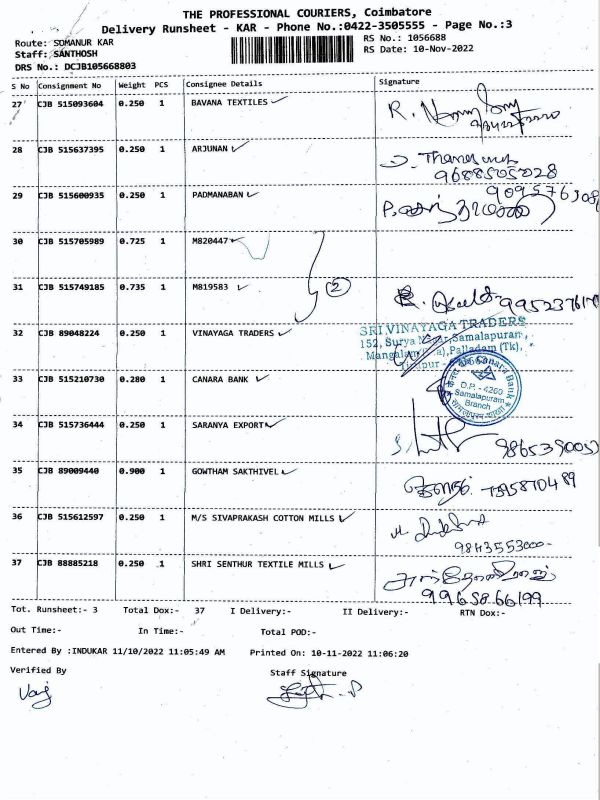 THE PROFESSIONAL COURIERS, Coimbatore
Delivery Runsheet - KAR - Phone No.:0422-3505555 - Page No.:3
Route: SOMANUR KAR
RS No.: 1056688
Staff: SANTHOSH
RS Date: 10-Nov-2022
DRS No.: DCJB105668803
S No Consignment No Weight PCS Consignee Details Signature
27 CJB 515093604 0.250 1 BAVANA TEXTILES
28 CJB 515637395 0.250 1 ARJUNAN
9688505028
29 CJB 515600935 0.250 1 PADMANABAN
30 CJB 515705989 0.725 1 M820447
31 CJB 515749185 0.735 1 M819583 2
32 CJB 89048224 0.250 1 VINAYAGA TRADERS
SRI VINAYAGA TRADERS
152, Surya Samalapuram,
Palladam (Tk),
33 CJB 515210730 0.280 1 CANARA BANK
Canara Bank
D.P. - 4260
Samalapuram
Branch
34 CJB 515736444 0.250 1 SARANYA EXPORT
35 CJB 89009440 0.900 1 GOWTHAM SAKTHIVEL
36 CJB 515612597 0.250 1 M/S SIVAPRAKASH COTTON MILLS
9843553000
37 CJB 88885218 0.250 1 SHRI SENTHUR TEXTILE MILLS
9965866199
Tot. Runsheet:- 3 Total Dox:- 37 I Delivery:- II Delivery:- RTN Dox:-
Out Time:- In Time:- Total POD:-
Entered By :INDUKAR 11/10/2022 11:05:49 AM Printed On: 10-11-2022 11:06:20
Verified By Staff Signature